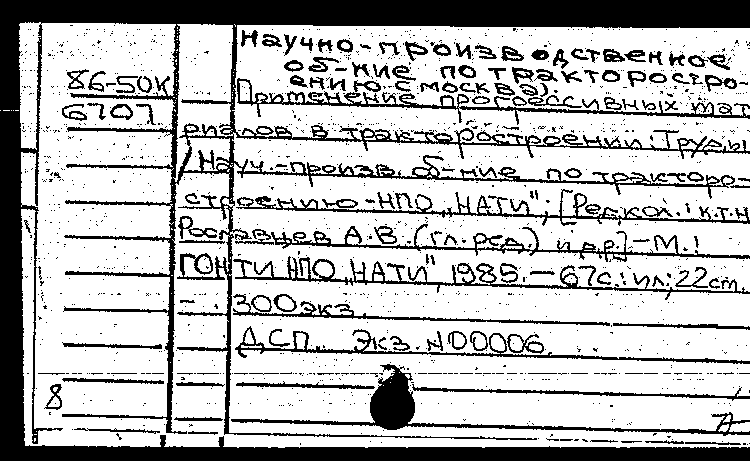 Научно-производственное
об-ние по тракторостро-
86-50К ению (Москва).
6707 Применение прогрессивных мат
риалов в тракторостроении: Труды
/Науч.-произв. об-ние по тракторо-
строению-НПО „НАТИ"; [Редкол.: к.т.н
Рославцев А.В. (гл.ред.) и др.]-М.:
ГОНТИ НПО „НАТИ", 1985.-67с.: ил; 22см.
- . 300экз.
ДСП. Экз. N00006.
8